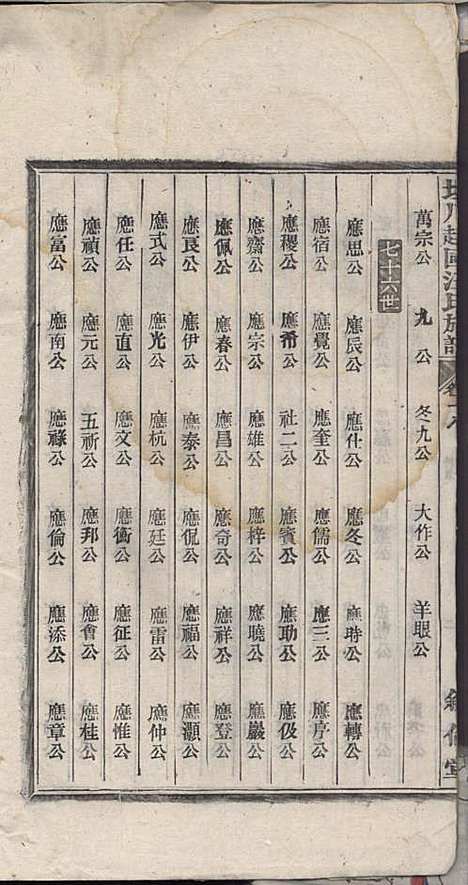 萬宗公 九公 冬九公 大作公 羊眼公
七十六世
應思公 應辰公 應仕公 應冬公 應時公 應轉公
應宿公 應覺公 應奎公 應儒公 應三公 應序公
應稷公 應希公 社二公 應賓公 應助公 應伋公
應齋公 應宗公 應雄公 應梓公 應曉公 應巖公
應佩公 應春公 應昌公 應奇公 應祥公 應登公
應良公 應伊公 應泰公 應侃公 應福公 應灝公
應式公 應光公 應杭公 應廷公 應雷公 應仲公
應任公 應直公 應文公 應衡公 應征公 應惟公
應禎公 應元公 五祈公 應邦公 應會公 應桂公
應富公 應南公 應祿公 應倫公 應添公 應章公